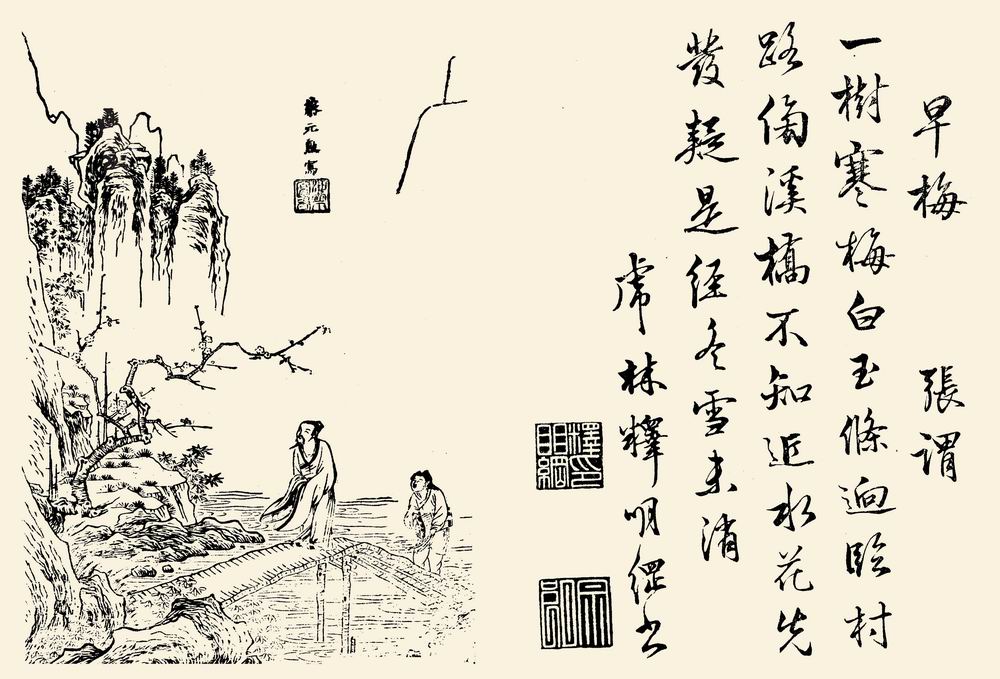 早梅 張謂
一樹寒梅白玉條迥臨村
路傍溪橋不知近水花先
發疑是經冬雪未消
虎林釋明綱書
釋印明綱
蔡元勳寫